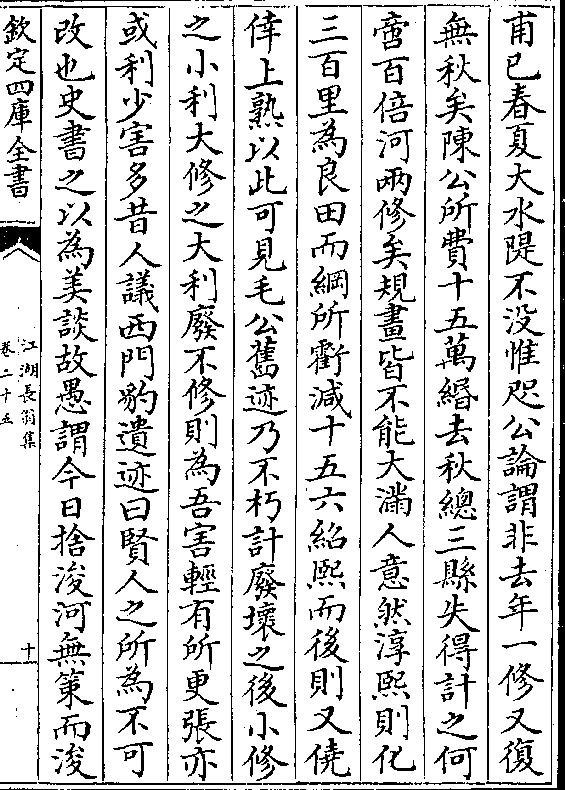 甫已春夏大水隄不没惟咫公論謂非去年一修又復
無秋矣陳公所費十五萬緡去秋總三縣失得計之何
啻百倍河兩修矣規畫皆不能大滿人意然淳熙則化
三百里為良田而綱所虧減十五六紹熙而後則又僥
倖上熟以此可見毛公舊迹乃不朽計廢壞之後小修
之小利大修之大利廢不修則為吾害輕有所更張亦
或利少害多昔人議西門豹遺迹曰賢人之所為不可
改也史書之以為美談故愚謂今日捨浚河無策而浚
欽定四庫全書
江湖長翁集
卷二十五
十